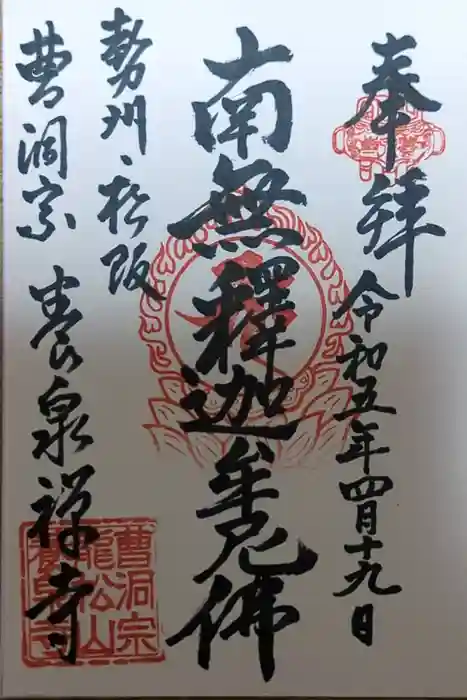 奉拝
令和五年四月十九日
南無釋迦牟尼佛
勢州松阪
曹洞宗 養泉禅寺
曹洞宗
龍松山
養泉寺